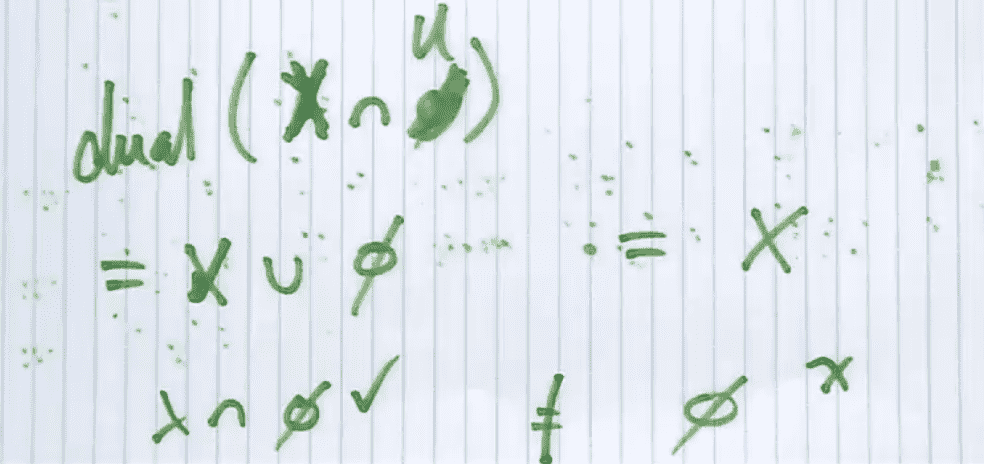 dual ( X ∩ U )
= X ∪ ∅ = X
X ∩ ∅ ✓ ≠ ∅ x